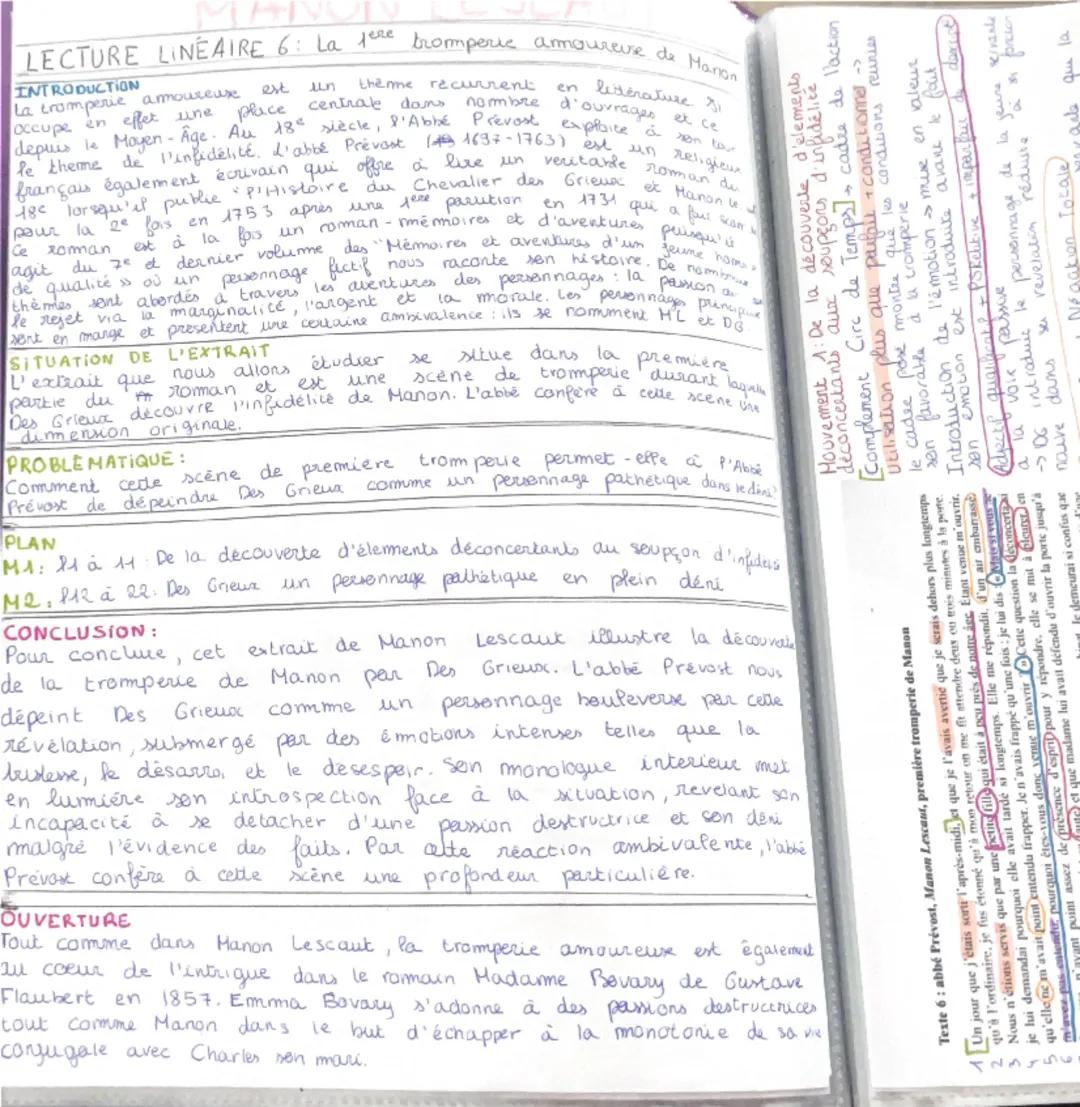 MANON LESCAUT
LECTURE LINÉAIRE 6: La 1ere tromperie amoureuse de Manon
INTRODUCTION
La tromperie amoureuse est un thème récurrent en littérature
occupe en effet une place centrale dans nombre d'ouvrages et ce
depuis le Moyen-Âge. Au 18e siècle, l'Abbé Prévost exploite à son tour
le thème de l'infidélité. L'abbé Prévost (1697-1763) est un religieux
français également écrivain qui offre à lire un veritable roman du
18e lorsqu'il publie "l'Histoire du Chevalier des Grieux et Manon
pour la 2e fois en 1753 après une 1ere parution en 1731 qui a fait
Ce roman est à la fois un roman-mémoires et d'aventures puisqu'il
agit du 7e et dernier volume des "Mémoires et aventures d'un
de qualité » où un personnage fictif nous raconte son histoire. De
thèmes sont abordés à travers les aventures des personnages : la passion
le rejet via la marginalité, l'argent et la morale. Les personnages
sont en marge et présentent une certaine ambivalence : ils se nomment ML et DG.
SITUATION DE L'EXTRAIT
L'extrait que nous allons étudier se situe dans la première
partie du roman et est une scène de tromperie durant laquelle
Des Grieux découvre l'infidélité de Manon. L'abbé confère à cette scène une
dimension originale.
PROBLÉMATIQUE :
Comment cette scène de première tromperie permet-elle à l'Abbé
Prévost de dépeindre Des Grieux comme un personnage pathétique dans le déni?
PLAN
M1: l1 à 11: De la découverte d'élements déconcertants au soupçon d'infidélité
M2: l12 à 22: Des Grieux un personnage pathétique en plein déni
CONCLUSION :
Pour conclure, cet extrait de Manon Lescaut illustre la découverte
de la tromperie de Manon par Des Grieux. L'abbé Prévost nous
dépeint Des Grieux comme un personnage bouleversé par cette
révélation, submergé par des émotions intenses telles que la
tristesse, le désarroi et le desespoir. Son monologue interieur met
en lumière son introspection face à la situation, revelant son
incapacité à se detacher d'une passion destructrice et son déni
malgré l'évidence des faits. Par cette réaction ambivalente, l'abbé
Prévost confère à cette scène une profondeur particulière.
OUVERTURE
Tout comme dans Manon Lescaut, la tromperie amoureuse est également
au coeur de l'intrigue dans le romain Madame Bovary de Gustave
Flaubert en 1857. Emma Bovary s'adonne à des passions destructrices
tout comme Manon dans le but d'échapper à la monotonie de sa vie
conjugale avec Charles son mari.
Mouvement 1: De la découverte d'élements
déconcertants aux soupçons d'infidélité
[Complément Circ de Temps] → cadre de l'action
Utilisation plus que parfait + conditionnel ->
le cadre posé montre que les conditions réunies
sont favorables à la tromperie
Introduction de l'émotion → mise en valeur
son émotion est introduite avant le fait
Adjectif qualificatif + Relative + imparfait de descript
a la voie passive
-> DG introduit le personnage de la jeune servante
naïve dans sa revelation réduite à sa fonction
Négation Totale
que la
Texte 6 : abbé Prévost, Manon Lescaut, première tromperie de Manon
1 Un jour que j'étais sorti l'après-midi, et que je l'avais avertie que je serais dehors plus longtemps
2 qu'à l'ordinaire, je fus étonné qu'à mon retour on me fît attendre deux ou trois minutes à la porte.
3 Nous n'étions servis que par une petite fille qui était à peu près de notre âge. Étant venue m'ouvrir,
4 je lui demandai pourquoi elle avait tardé si longtemps. Elle me répondit, d'un air embarrassé,
5 qu'elle ne m'avait point entendu frapper. Je n'avais frappé qu'une fois ; je lui dis : Mais si vous ne
6 m'avez pas entendu, pourquoi êtes-vous donc venue m'ouvrir ? Cette question la déconcerta si
n'ayant point assez de présence d'esprit pour y répondre, elle se mit à pleurer, en
et que madame lui avait défendu d'ouvrir la porte jusqu'à
Je demeurai si confus que